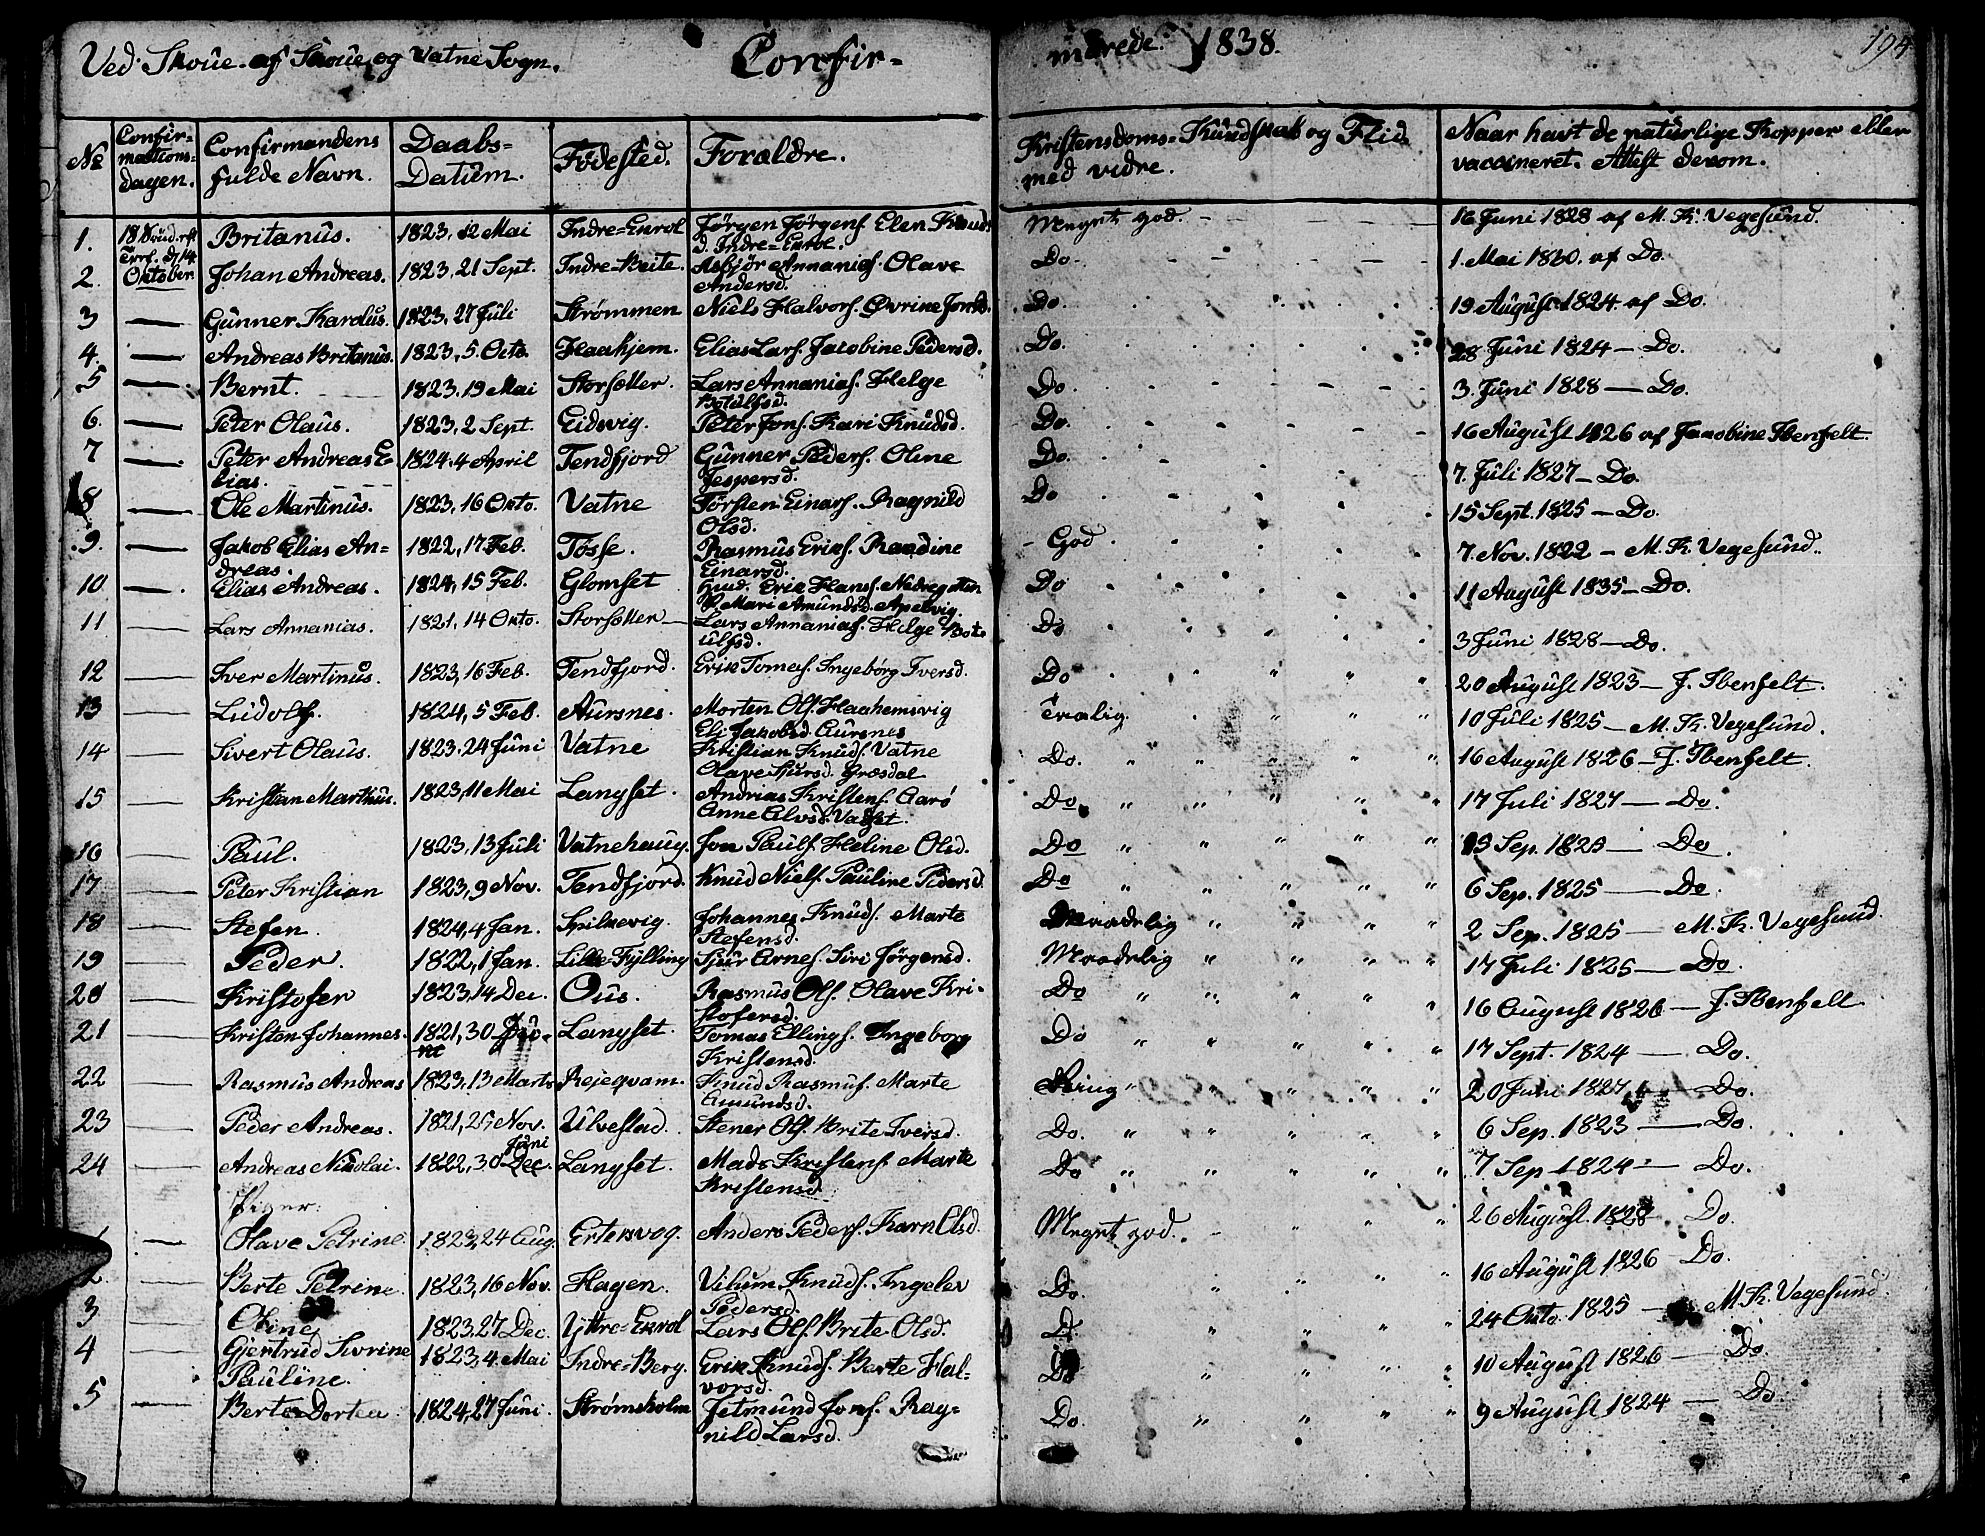 Ved Skoue af Skoue og Vatne Sogn. Confir= merede 1838. 194
No Confir=mations=dagen. Confirmandens fulde Navn. Daabs=Datum. Födested. Forældre. Kristendoms=Kundskab og Flid med videre. Naar havt de naturlige Kopper eller vaccineret. Attest derom.
1. October Britanus. 1823, 12 Mai Indre=Enrol Jørgen Jørgens. Elen Knuds d. Indre=Enrol. Meget god. 16 Juni 1828 af M. K. Vegesund.
2. Johan Andreas. 1823, 21 Sept. Indre=Beite. Asbjör Annanias. Olave Andersd. Do 1. Mai 1830. af Do.
3 — Gunner Kardus. 1823, 27 Juli Strømmen Niels Halvors. Do. 19 August 1824 af Do.
4. — Andreas Britanus. 1823, 5 Octo. Haahjem. Elias Lars. Jacobine Pedersd. Do. 28 Juni 1824 — Do.
5 — Bernt. 1823, 19 Mai Storsæter. Lars Annanias. Helge Botulfsd. Do. 3. Juni 1828 — Do.
6. — Peter Olaus. 1823, 2 Sept. Eidsvig. Peter Jons. Kari Knudsd. Do. 16 August 1826 af Jacobine Ibenfelt.
7 — Peter Andreas Elias. 1824, 4 April Tendfjord Gunner Peders. Oline Jespersd. Do. 7. Juli 1827 — Do.
8 — Ole Martinus. 1823, 16 Octo. Vatne Torsten Einars. Ragnild Olsd. Do 15 Sept. 1825 — Do.
9. — Jakob Elias An=dreas. 1822, 17 Feb. Tösse. Rasmus Eriks. Raadine Einarsd. God 7. Nov. 1822 — M. K. Vegesund.
10 — Elias Andreas. 1824, 15 Feb. Glomset Erik Hans. Mari Amundsd. Apelvig. Do 11 August 1835 — Do.
11 — Lars Annanias. 1821, 14 Octo. Storsæter Lars Annanias. Helge Botulfsd. Do 3 Juni 1828 — Do.
12 — Iver Martinus. 1823, 16 Feb. Tendfjord. Erik Tomas. Ingebörg Iversd. Do 20 August 1823 — J. Ibenfelt.
13 — Ludolf. 1824, 5 Feb. Aursnes. Morten Ols. Haahemsvig Eli Jakobsd. Aursnes 10 Juli 1825 — M. K. Vegesund.
14 — Sivert Olaus. 1823, 24 Juni Vatne Kristian Knuds. Vatne Olave Sjursd. Græsdal Do. 16 August 1826 — J. Ibenfelt.
15 — Kristian Martinus. 1823, 11 Mai Langset. Andrias Kristens. Aarö Anne Do. 17 Juli 1827 — Do.
16 — Paul. 1823, 13 Juli Vatnehaug. Jon Pauls. Heline Olsd. Do Sep. 1825 — Do.
17 — Peter Kristian 1823, 9 Nov. Tendfjord. Knud Niels. Pauline Pedersd. Do 6 Sep. 1825 — Do.
18 — Stefen. 1824, 4 Jan. Spilkevig. Johannes Knuds. Marte Stefensd. Maadelig 2 Sep. 1825 — M. K. Vegesund.
19 — Peder. 1822, 1 Jan. Lille=Fylling Sjur Arnes. Siri Jørgensd. Maadelig 17 Juli 1825 — Do.
20 — Kristofer 1823, 14 Dec. Ous. Rasmus Ols. Olave Kri=stofersd. Do 16 August 1826 — J. Ibenfelt
21 — Kristen Johannes. 1821, 30 Langset. Tomas Ellings. Ingeborg Kristensd. Do 17 Sept. 1824 — Do.
22 — Rasmus Andreas 1823, 13 Marts Rejeqvam. Knud Rasmus. Marte Amundsd. Ring 20 Juni 1827 — Do.
23 — Peder Andreas. 1821, 25 Nov. Ulvestad. Stener Ols. Brite Iversd. Do. 6 Sep. 1823 — Do.
24 — Andreas Nikolai. 1822, 30 Juni Dec. Langset. Mads Kristens. Marte Kristensd. Do 7 Sep 1824 — Do.
Piger:
1 — Olave Petrine 1823, 24 Aug. Ertesvog. Anders Peders. Karn Elsd. Meget god. 26 August 1828 Do.
2 — Berte Petrine. 1823, 16 Nov. Hagen. Vilum Knuds. Ingelev Pedersd. Do. 16 August 1826 Do.
3 Oline 1823, 27 Dec. Yttre=Enrol Lars Ols. Brite Olsd. D. 24 Octo. 1825 — M. K. Vegesund.
4 Gjertrud Severine Pauline. 1823, 4 Mai Indre=Berg. Erik Knuds. Berte Hal=vorsd. Do 10 August 1826 — Do.
5 — Berte Dortea 1824, 27 Juni Strømsholm Jetmund Jons. Rag=nild Larsd. Do. 9 August 1824 — Do